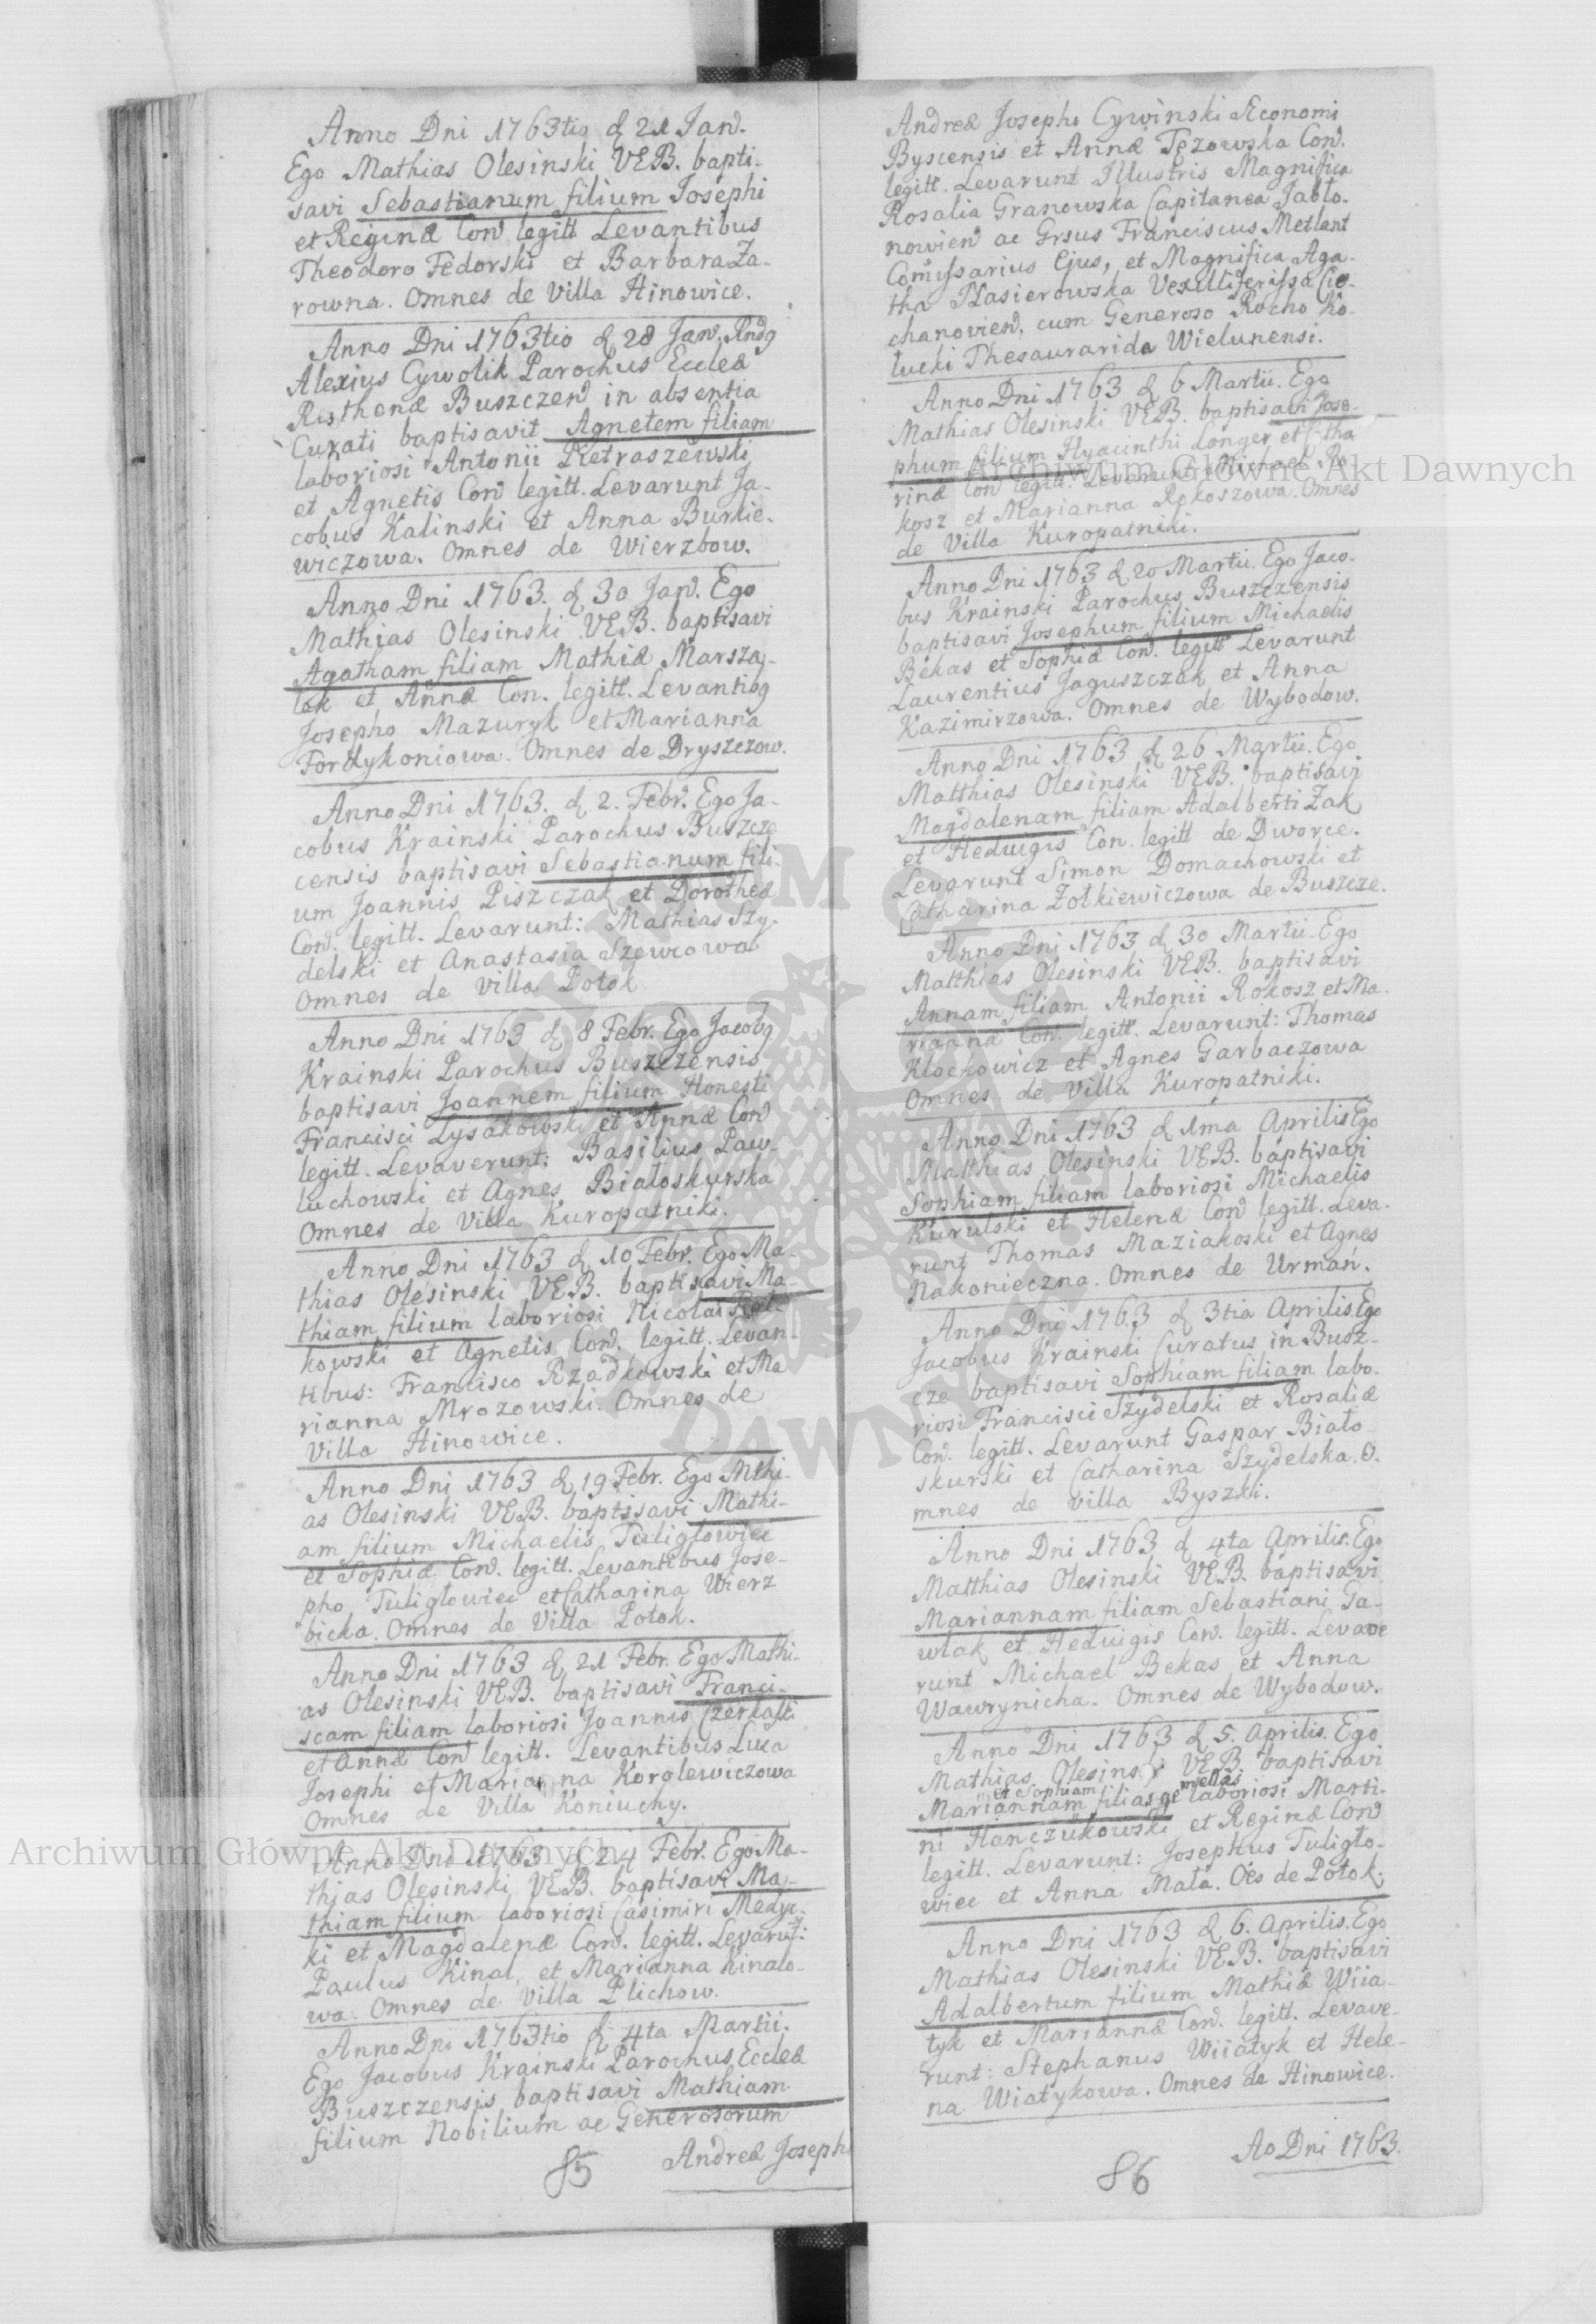 Anno Dni 1763tio d 21 Jan.
Ego Mathias Olesinski VEB. bapti-
savi Sebastianum filium Josephi
et Reginæ Con legitt Levantibus
Theodoro Fedorski et Barbara Za-
rowna. Omnes de Villa Hinowice.
Anno Dni 1763tio d 28 Jan.
Alexius Cywolik Parochus Eccleæ
Ruthenæ Buszczen in absentia
Curati baptisavit Agnetem filiam
laboriosi Antonii Pietraszewski
et Agnetis Con legitt. Levarunt Ja-
cobus Kalinski et Anna Burkie-
wiczowa. Omnes de Wierzbow.
Anno Dni 1763. d 30 Jan. Ego
Mathias Olesinski VEB. baptisavi
Agatham filiam Mathiæ Marsza-
lek et Annæ Con. legitt. Levantibg
Josepho Mazuryk et Marianna
Omnes de Dryszczow.
Anno Dni 1763. d 2. Febr. Ego Ja-
cobus Krainski Parochus Buszcze
censis baptisavi Sebastianum fili-
um Joannis Piszczak et Dorotheæ
Con. legitt. Levarunt: Mathias Szy-
delski et Anastasia Szewcowa
Omnes de Villa Potok.
Anno Dni 1763 d 8 Febr. Ego Jacobg
Krainski Parochus Buszczensis
baptisavi Joannem filium Honesti
Francisci Lysakowski et Annæ Con
legitt. Levaverunt: Basilius Paw-
luchowski et Agnes Białoskurska
Omnes de Villa Kuropatniki.
Anno Dni 1763 d 10 Febr. Ego Ma-
thias Olesinski VEB. baptisavi Ma-
thiam filium laboriosi Nicolai
kowski et Agnetis Con. legitt. Levan
tibus: Francisco Rządkowski et Ma
rianna Mrozowski. Omnes de
Villa Hinowice.
Anno Dni 1763 d 19 Febr. Ego Mthi-
as Olesinski VEB. baptisavi Mathi-
am filium Michaelis Tuligłowiec
et Sophiæ Con. legitt. Levantibus Jose-
pho Tuligłowiec et Catharina Wierz
bicka. Omnes de Villa Potok.
Anno Dni 1763 d 21 Febr. Ego Mathi-
as Olesinski VEB. baptisavi Franci-
scam filiam laboriosi Joannis Czerkaski
et Annæ Con legitt. Levantibus Luca
Josephi et Marianna Korolewiczowa
Omnes de Villa Koniuchy.
Anno Dni 1763 d 24 Febr. Ego Ma-
thias Olesinski VEB. baptisavi Ma-
thiam filium laboriosi Casimiri Medyc-
ki et Magdalenæ Con. legitt. Levarunt:
Paulus Kinal et Marianna Kinalo-
wa. Omnes de Villa Plichow.
Anno Dni 1763tio d 4ta Martii.
Ego Jacobus Krainski Parochus Eccleæ
Buszczensis baptisavi Mathiam
filium Nobilium ac Generosorum
85 Andreæ Josephi
Andreæ Josephi Cywinski Æconomi
Byscensis et Annæ Tęzowska Con.
legitt. Levarunt Illustris Magnifica
Rosalia Granowska Capitanea Jabło-
nowien ac Grsus Franciscus Metlent
Comissarius Ejus, et Magnifica Aga-
tha Nasierowska Vexilliferissa Cie-
chanovien, cum Generoso Rocho Ko-
łucki Thesaurarida Wielunensi.
Anno Dni 1763 d 6 Martii. Ego
Mathias Olesinski VEB. baptisavi Jose-
phum filium Hyacinthi Longer et Ctha
rinæ Con legitt. Levarunt Michael Ro-
kosz et Marianna Rokoszowa. Omnes
de Villa Kuropatniki.
Anno Dni 1763 d 20 Martii. Ego Jaco-
bus Krainski Parochus Buszczensis
baptisavi Josephum filium Michaelis
Bekas et Sophiæ Con. legitt Levarunt
Laurentius Jaguszczak et Anna
Kazimirzowa. Omnes de Wybodow.
Anno Dni 1763 d 26 Martii. Ego
Matthias Olesinski VEB. baptisavi
Magdalenam filiam Adalberti Żak
et Hedwigis Con. legitt de Dworce.
Levarunt Simon Domachowski et
Catharina Żołkiewiczowa de Buszcze.
Anno Dni 1763 d 30 Martii. Ego
Matthias Olesinski VEB. baptisavi
Annam filiam Antonii Rokosz et Ma-
rianna Con. legitt. Levarunt: Thomas
Klochowicz et Agnes Garbaczowa
Omnes de Villa Kuropatniki.
Anno Dni 1763 d 1ma Aprilis Ego
Matthias Olesinski VEB. baptisavi
Sophiam filiam laboriosi Michaelis
Kurulski et Helenæ Con legitt. Leva-
runt Thomas Maziakoski et Agnes
Nakonieczna. Omnes de Urmań.
Anno Dni 1763 d 3tia Aprilis. Ego
Jacobus Krainski Curatus in Busz-
cze baptisavi Sophiam filiam labo-
riosi Francisci Szydelski et Rosaliæ
Con. legitt. Levarunt Gaspar Biało-
skurski et Catharina Szydelska. O-
mnes de villa Byszki.
Anno Dni 1763 d 4ta Aprilis. Ego
Matthias Olesinski VEB. baptisavi
Mariannam filiam Sebastiani Ga-
wlak et Hedwigis Con. legitt. Levave
runt Michael Bekas et Anna
Wawrynicha. Omnes de Wybodow.
Anno Dni 1763 d 5. Aprilis. Ego
Mathias Olesinski VEB. baptisavi
et Sophiam mellas
Mariannam filias ge laboriosi Marti-
ni Hanczukowski et Reginæ Con
legitt. Levarunt: Josephus Tuligło-
wiec et Anna Mała. Oes de Potok.
Anno Dni 1763 d 6. Aprilis. Ego
Mathias Olesinski VEB. baptisavi
Adalbertum filium Mathiæ Wiia-
tyk et Mariannæ Con. legitt. Levave-
runt: Stephanus Wiiatyk et Hele-
na Wiatykowa. Omnes de Hinowice.
86 Ao Dni 1763.
Archiwum Główne Akt Dawnych
Archiwum Główne Akt Dawnych
ARCHIWUM GŁÓWNE AKT DAWNYCH